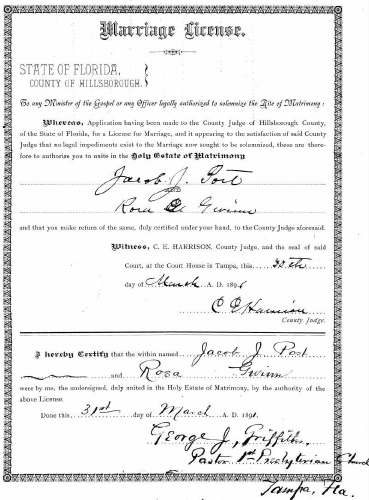 Marriage License.
STATE OF FLORIDA,
COUNTY OF HILLSBOROUGH.
To any Minister of the Gospel or any Officer legally authorized to solemnize the Rite of Matrimony:
Whereas, Application having been made to the County Judge of Hillsborough County,
of the State of Florida, for a License for Marriage, and it appearing to the satisfaction of said County
Judge that no legal impediments exist to the Marriage now sought to be solemnized, these are there-
fore to authorize you to unite in the Holy Estate of Matrimony
Jacob J. Post
and
Rosa Gwinn
and that you make return of the same, duly certified under your hand, to the County Judge aforesaid.
Witness, C. E. HARRISON, County Judge, and the seal of said
Court, at the Court House in Tampa, this
day of March A. D. 189
C E Harrison
County Judge.
I hereby Certify that the within named Jacob J. Post
and Rosa Gwinn
were by me, the undersigned, duly united in the Holy Estate of Matrimony, by the authority of the
above License.
Done this 31st day of March A. D. 1891.
George J. Griffiths.
Pastor 1st Presbyterian Church
Tampa, Fla.